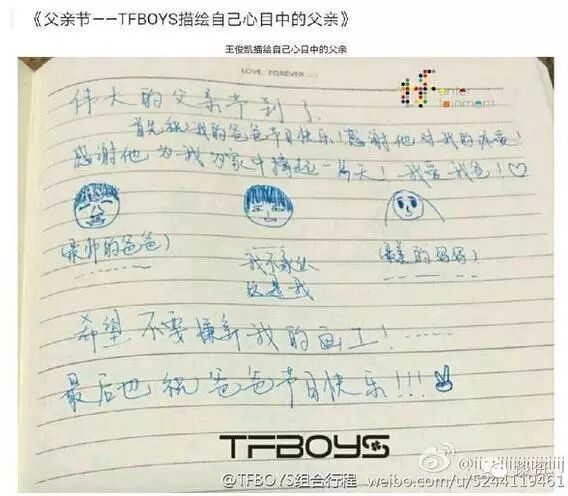 《父亲节——TFBOYS描绘自己心目中的父亲》
王俊凯描绘自己心目中的父亲
LOVE FOREVER...
伟大的父亲节到了
首先祝我的爸爸节日快乐！感谢他对我的疼爱！
感谢他为我为家中撑起一片天！我爱我爸！♡
(最帅的爸爸)
我不敢业
这是我
(最美的妈妈)
希望不要嫌弃我的画工！
最后也祝爸爸节日快乐!!!
TFBOYS
@TFBOYS组合行程 weibo.com/u/5244119461